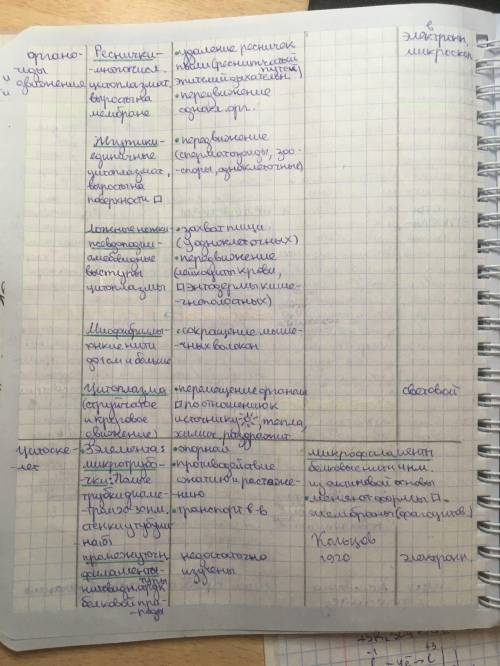 органо-
иды
движения
Реснички-
-многочисл.
цитоплазмат.
выросты на
мембране
• удаление ресничек
пыли (реснитчатый
эпителий дыхательн.
путей)
• передвижение
однокл. орг.
в
электронн.
микроскоп
Жгутики-
единичные
цитоплазмат.
выросты на
поверхности □
• передвижение
(сперматозоиды, зоо-
-споры, одноклеточные)
Ложные ножки-
псевдоподии-
амебовидные
выступы
цитоплазмы
• захват пищи
(у одноклеточных)
• передвижение
(лейкоциты крови,
□ энтодермы кише-
-чнополостных)
Миофибриллы-
тонкие нити
до 1 см и больше
• сокращение мыше-
-чных волокон
Цитоплазма
(струйчатое
и круговое
движение)
• перемещение органелл
□ по отношению к
источнику: света, тепла,
химич. раздражит
световой
Цитоске-
-лет
3 элемента:
микротрубо-
чки: Полые
трубки диаме-
-тром 20-30нм,
стенки тубули-
-на Б)
• опорная
• противодействие
сжатию и растяже-
-нию
• транспорт в-в
микрофиламенты
белковые нити 4 нм.
из актиновой основы
• меняют формы □.
мембраны (фагоцитоз)
промежуточн.
филаменты-
нитевидн. стр-ры
белковой при-
-роды
недостаточно
изучены
Кольцов
1920
электронн.